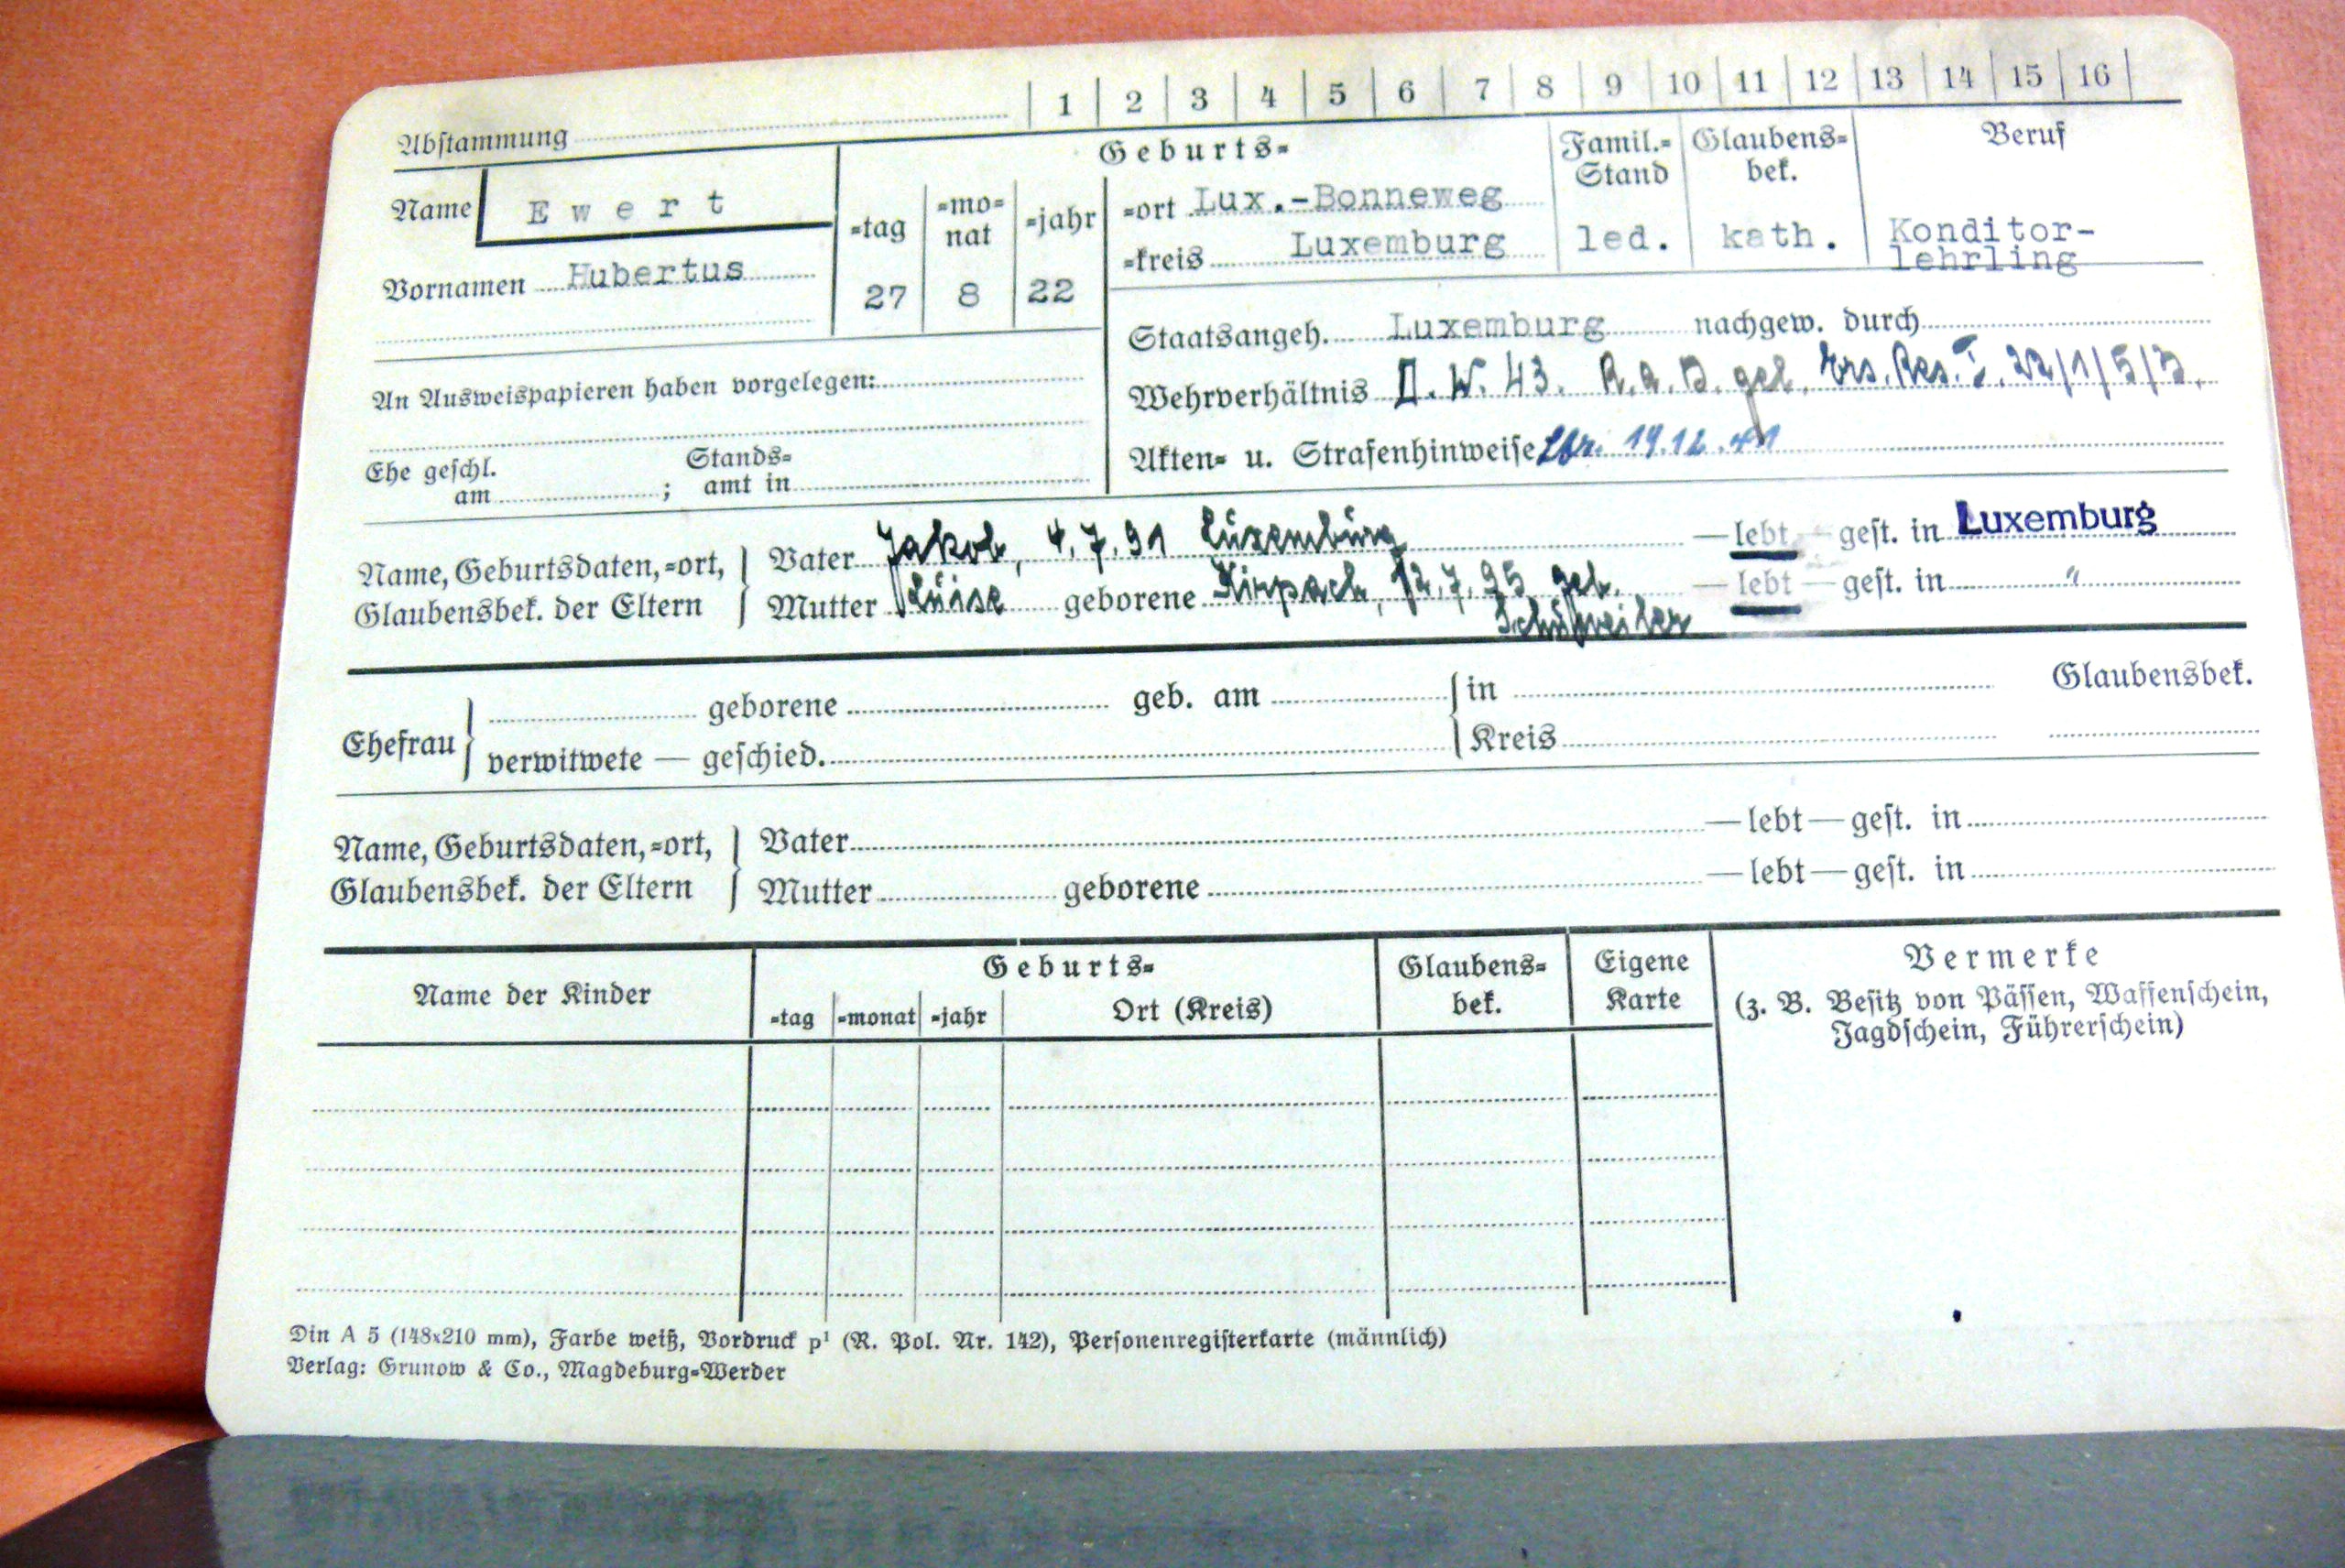 1 2 3 4 5 6 7 8 9 10 11 12 13 14 15 16
Abstammung
Name E w e r t
Vornamen Hubertus
Geburts-
-tag -mo-nat -jahr
27 8 22
-ort Lux.-Bonneweg
-kreis Luxemburg
Famil.-Stand
led.
Glaubens-bek.
kath.
Beruf
Konditor-
lehrling
Staatsangeh. Luxemburg nachgew. durch
An Ausweispapieren haben vorgelegen:
Wehrverhältnis D. W. 43. R.a.D. gel. Ers. Res. I. 22/1/5/3.
Akten- u. Strafenhinweise 19.12.41
Ehe geschl. am ; Stands-amt in
Name, Geburtsdaten, -ort,
Glaubensbek. der Eltern
Vater Jakob, 4.7.91 Luxemburg — lebt — gest. in Luxemburg
Mutter Luise geborene Kirpach, 12.7.95 geb. — lebt — gest. in "
Schuweiler
Ehefrau
geborene geb. am in Glaubensbek.
verwitwete — geschied. Kreis
Name, Geburtsdaten, -ort,
Glaubensbek. der Eltern
Vater — lebt — gest. in
Mutter geborene — lebt — gest. in
Name der Kinder
Geburts-
-tag -monat -jahr Ort (Kreis)
Glaubens-
bek.
Eigene
Karte
Vermerke
(z. B. Besitz von Pässen, Waffenschein,
Jagdschein, Führerschein)
Din A 5 (148x210 mm), Farbe weiß, Vordruck p¹ (R. Pol. Nr. 142), Personenregisterkarte (männlich)
Verlag: Grunow & Co., Magdeburg-Werder